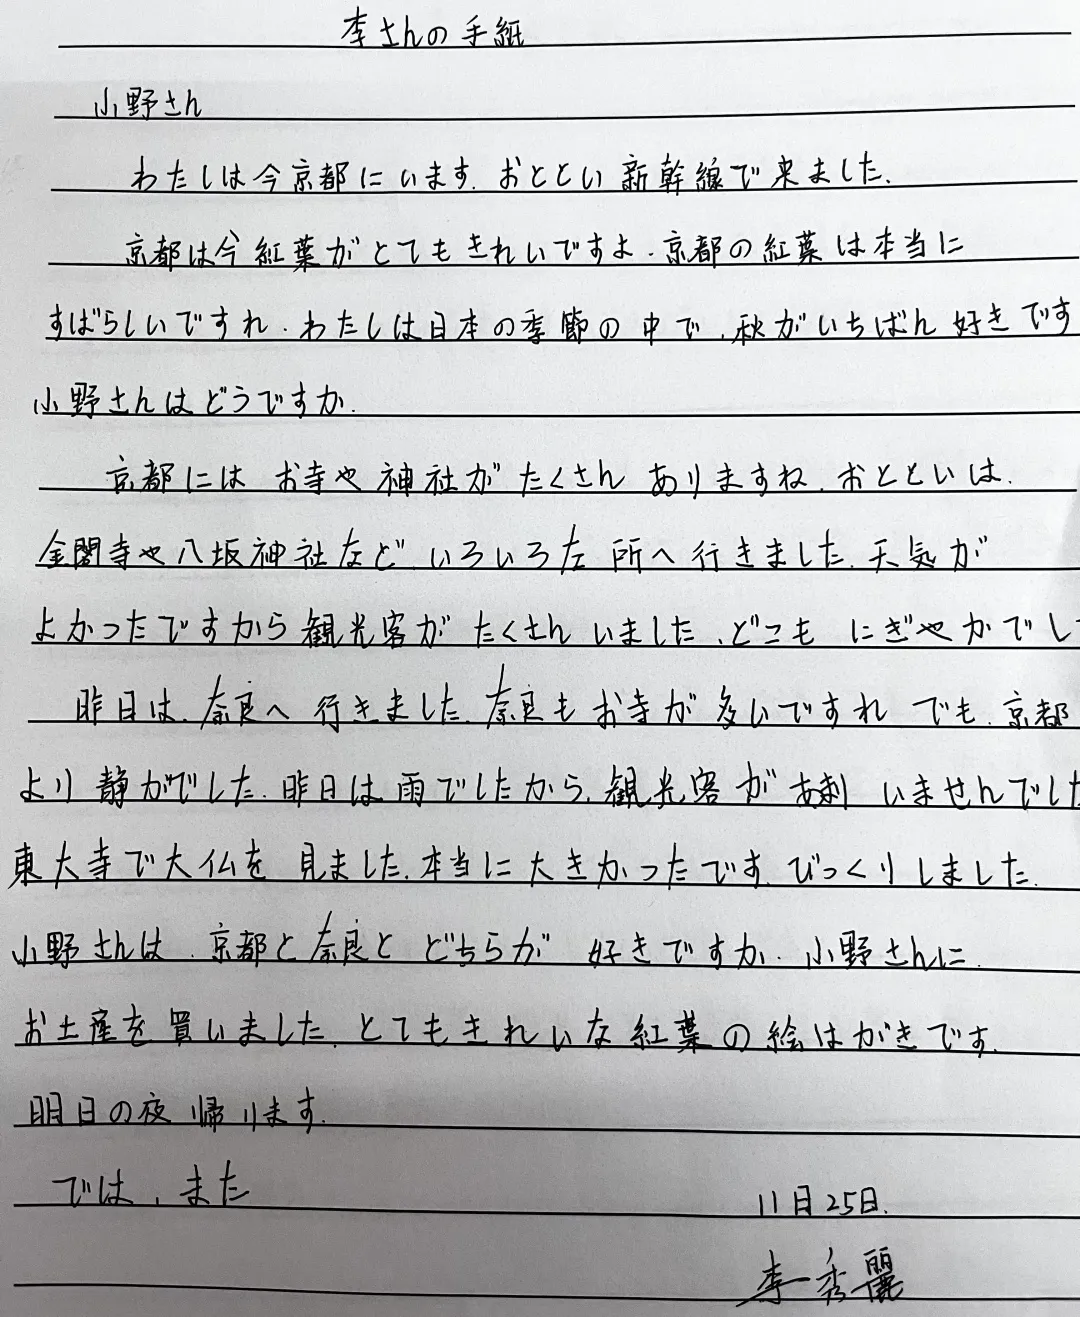 李さんの手紙
小野さん
わたしは今京都にいます.おととい新幹線で来ました.
京都は今紅葉がとてもきれいですよ.京都の紅葉は本当に
すばらしいですれ.わたしは日本の季節の中で.秋がいちばん好きです
小野さんはどうですか.
京都にはお寺や神社がたくさんありますね.おとといは.
金閣寺や八坂神社など.いろいろ左所へ行きました.天気が
よかったですから観光客がたくさんいました.どこもにぎやかでし
昨日は.奈良へ行きました.奈良もお寺が多いですれ でも.京都
より静がでした.昨日は雨でしたから.観光客があまりいませんでした
東大寺で大仏を見ました.本当に大きかったです.びっくりしました.
小野さんは.京都と奈良とどちらが好きですか.小野さんに.
お土産を買いました.とてもきれいな紅葉の絵はがきです.
明日の夜帰ります.
では、また
11日25日.
李秀麗